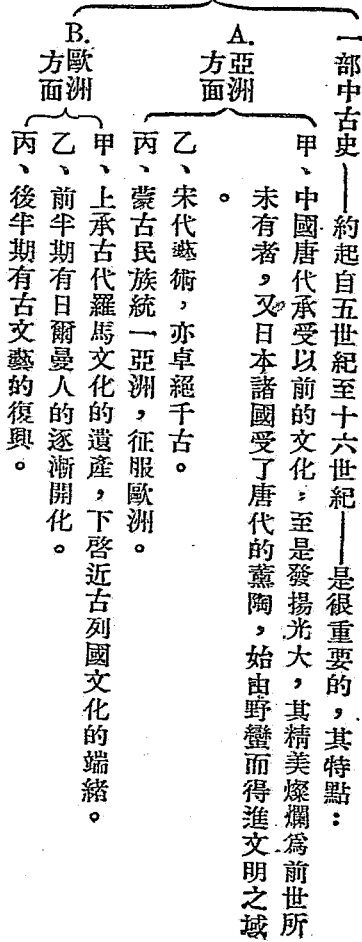 一部中古史——約起自五世紀至十六世紀——是很重要的，其特點：
A.亞洲方面
甲、中國唐代承受以前的文化；至是發揚光大，其精美燦爛爲前世所
未有者，又日本諸國受了唐代的薰陶，始由野蠻而得進文明之域
。
乙、宋代藝術，亦卓絕千古。
丙、蒙古民族統一亞洲，征服歐洲。
B.歐洲方面
甲、上承古代羅馬文化的遺產，下啓近古列國文化的端緒。
乙、前半期有日爾曼人的逐漸開化。
丙、後半期有古文藝的復興。